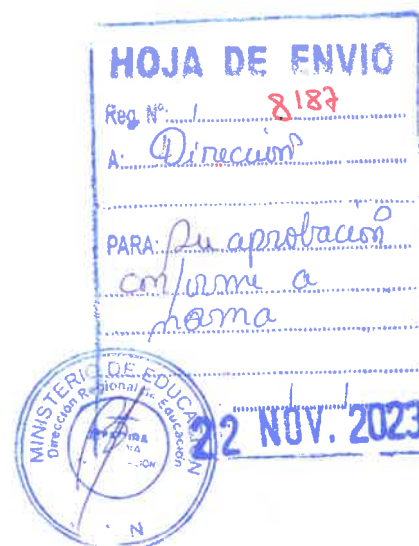 HOJA DE ENVIO
Reg. Nº: / 8187
A: Dirección
PARA: Su aprobación
conforme a
norma
MINISTERIO DE EDUCACION
Dirección Regional de Educación
22 NOV. 2023
N